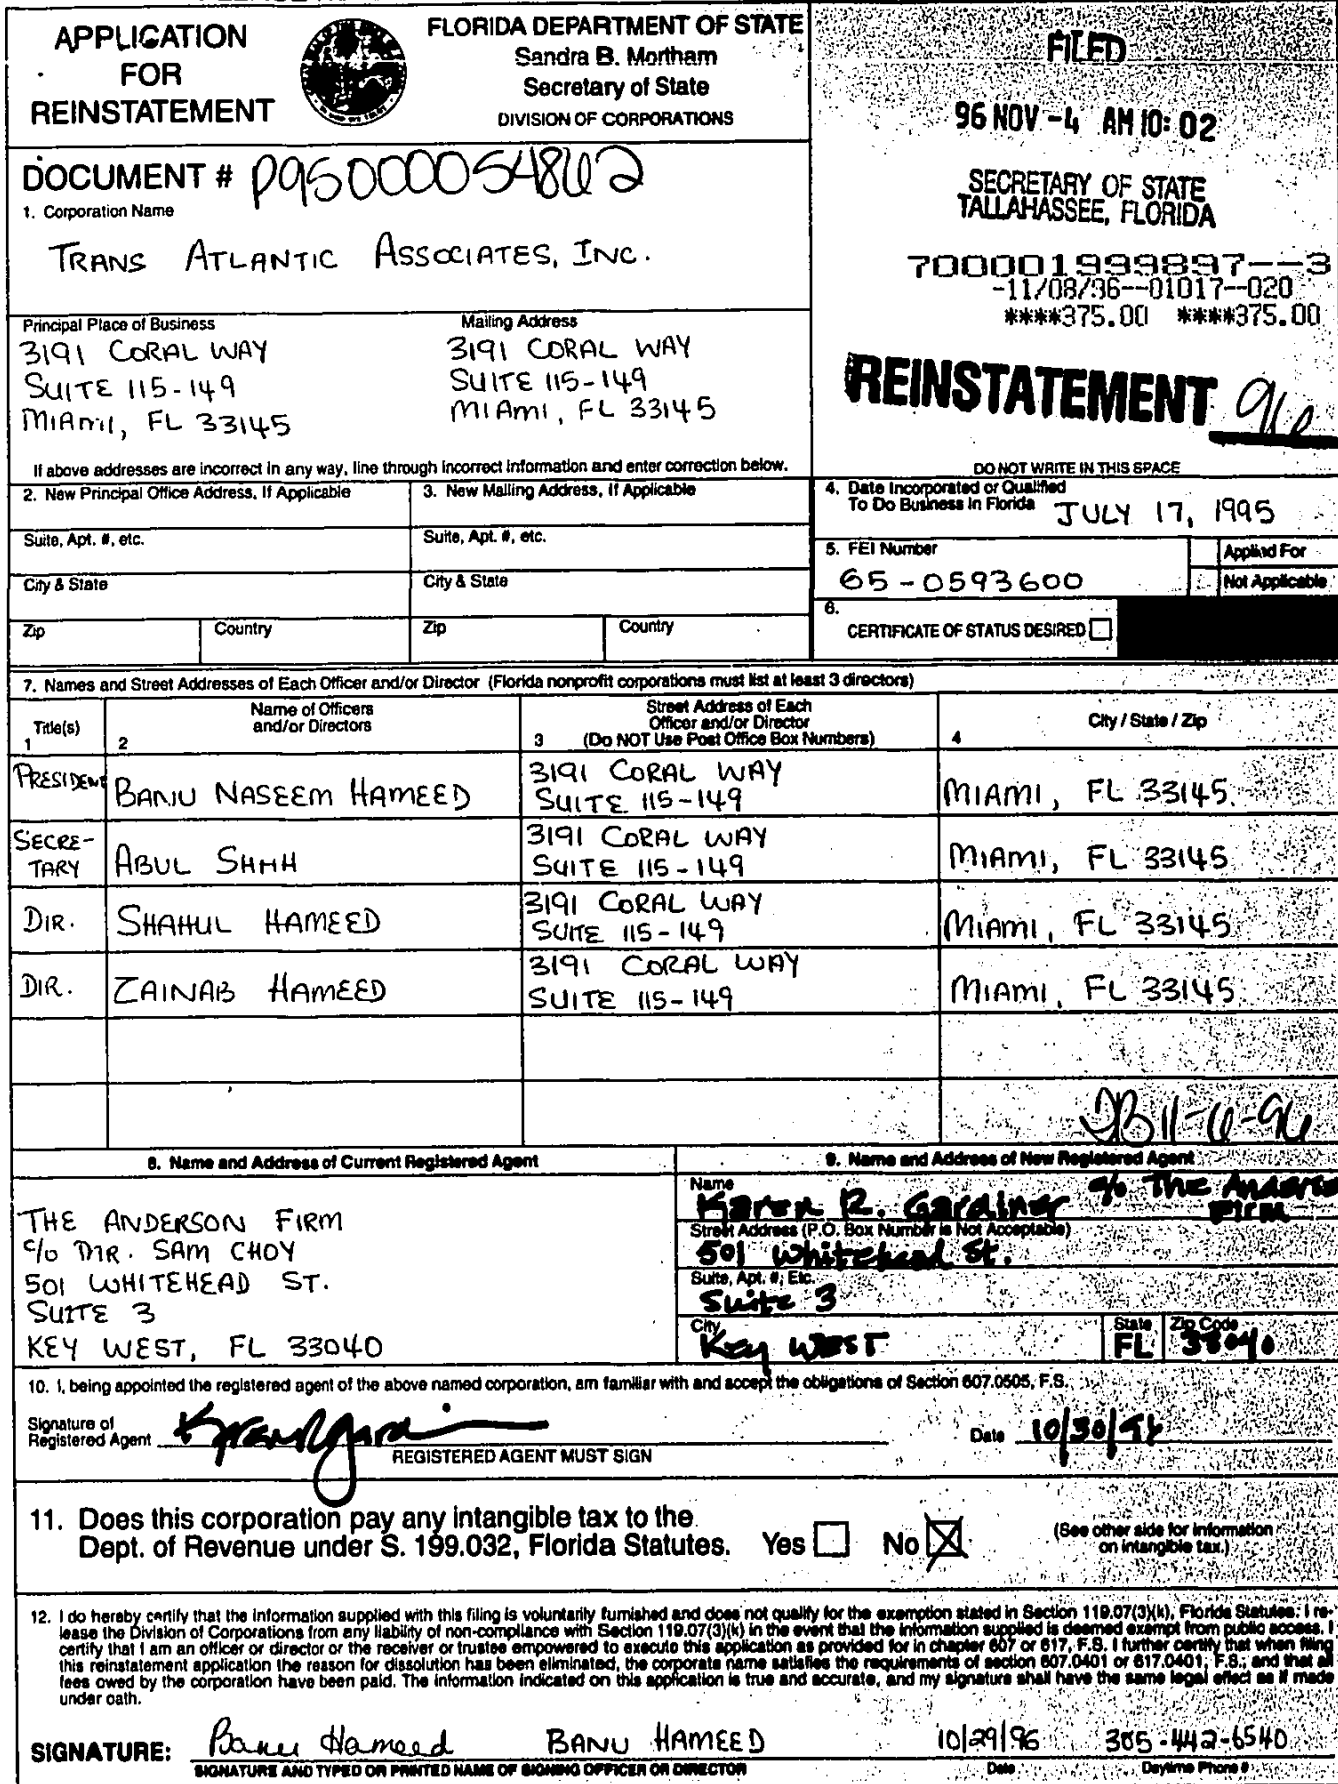 APPLICATION
FOR
REINSTATEMENT
FLORIDA DEPARTMENT OF STATE
Sandra B. Mortham
Secretary of State
DIVISION OF CORPORATIONS
FILED
96 NOV -4 AM 10: 02
SECRETARY OF STATE
TALLAHASSEE, FLORIDA
DOCUMENT # P95000054862
1. Corporation Name
TRANS ATLANTIC ASSOCIATES, INC.
700001999897--3
-11/08/96--01017--020
****375.00 ****375.00
Principal Place of Business
Mailing Address
3191 CORAL WAY
3191 CORAL WAY
SUITE 115-149
SUITE 115-149
MIAMI, FL 33145
MIAMI, FL 33145
REINSTATEMENT 96
If above addresses are incorrect in any way, line through incorrect information and enter correction below.
DO NOT WRITE IN THIS SPACE
2. New Principal Office Address, If Applicable
3. New Mailing Address, If Applicable
4. Date Incorporated or Qualified
To Do Business in Florida JULY 17, 1995
Suite, Apt. #, etc.
Suite, Apt. #, etc.
5. FEI Number
65-0593600
Applied For
Not Applicable
City & State
City & State
6.
CERTIFICATE OF STATUS DESIRED
Zip
Country
Zip
Country
7. Names and Street Addresses of Each Officer and/or Director (Florida nonprofit corporations must list at least 3 directors)
Title(s)
1
Name of Officers
and/or Directors
2
Street Address of Each
Officer and/or Director
3 (Do NOT Use Post Office Box Numbers)
City / State / Zip
4
PRESIDENT
BANU NASEEM HAMEED
3191 CORAL WAY
SUITE 115-149
MIAMI, FL 33145
SECRE-
TARY
ABUL SHAH
3191 CORAL WAY
SUITE 115-149
MIAMI, FL 33145
DIR.
SHAHUL HAMEED
3191 CORAL WAY
SUITE 115-149
MIAMI, FL 33145
DIR.
ZAINAB HAMEED
3191 CORAL WAY
SUITE 115-149
MIAMI, FL 33145
11-6-96
8. Name and Address of Current Registered Agent
9. Name and Address of New Registered Agent
THE ANDERSON FIRM
c/o MR. SAM CHOY
501 WHITEHEAD ST.
SUITE 3
KEY WEST, FL 33040
Name
Karen R. Gardiner c/o The Anderso
Firm
Street Address (P.O. Box Number is Not Acceptable)
501 Whitehead St.
Suite, Apt. #, Etc.
Suite 3
City
Key WEST
State
FL
Zip Code
33040
10. I, being appointed the registered agent of the above named corporation, am familiar with and accept the obligations of Section 607.0505, F.S.
Signature of
Registered Agent
REGISTERED AGENT MUST SIGN
Date 10/30/96
11. Does this corporation pay any intangible tax to the
Dept. of Revenue under S. 199.032, Florida Statutes. Yes No
(See other side for information
on intangible tax.)
12. I do hereby certify that the information supplied with this filing is voluntarily furnished and does not qualify for the exemption stated in Section 119.07(3)(k), Florida Statutes. I re-
lease the Division of Corporations from any liability of non-compliance with Section 119.07(3)(k) in the event that the information supplied is deemed exempt from public access. I
certify that I am an officer or director or the receiver or trustee empowered to execute this application as provided for in chapter 607 or 617, F.S. I further certify that when filing
this reinstatement application the reason for dissolution has been eliminated, the corporate name satisfies the requirements of section 607.0401 or 617.0401, F.S.; and that all
fees owed by the corporation have been paid. The information indicated on this application is true and accurate, and my signature shall have the same legal effect as if made
under oath.
SIGNATURE: Banu Hameed BANU HAMEED 10/29/96 305-442-6540
SIGNATURE AND TYPED OR PRINTED NAME OF SIGNING OFFICER OR DIRECTOR
Date
Daytime Phone #